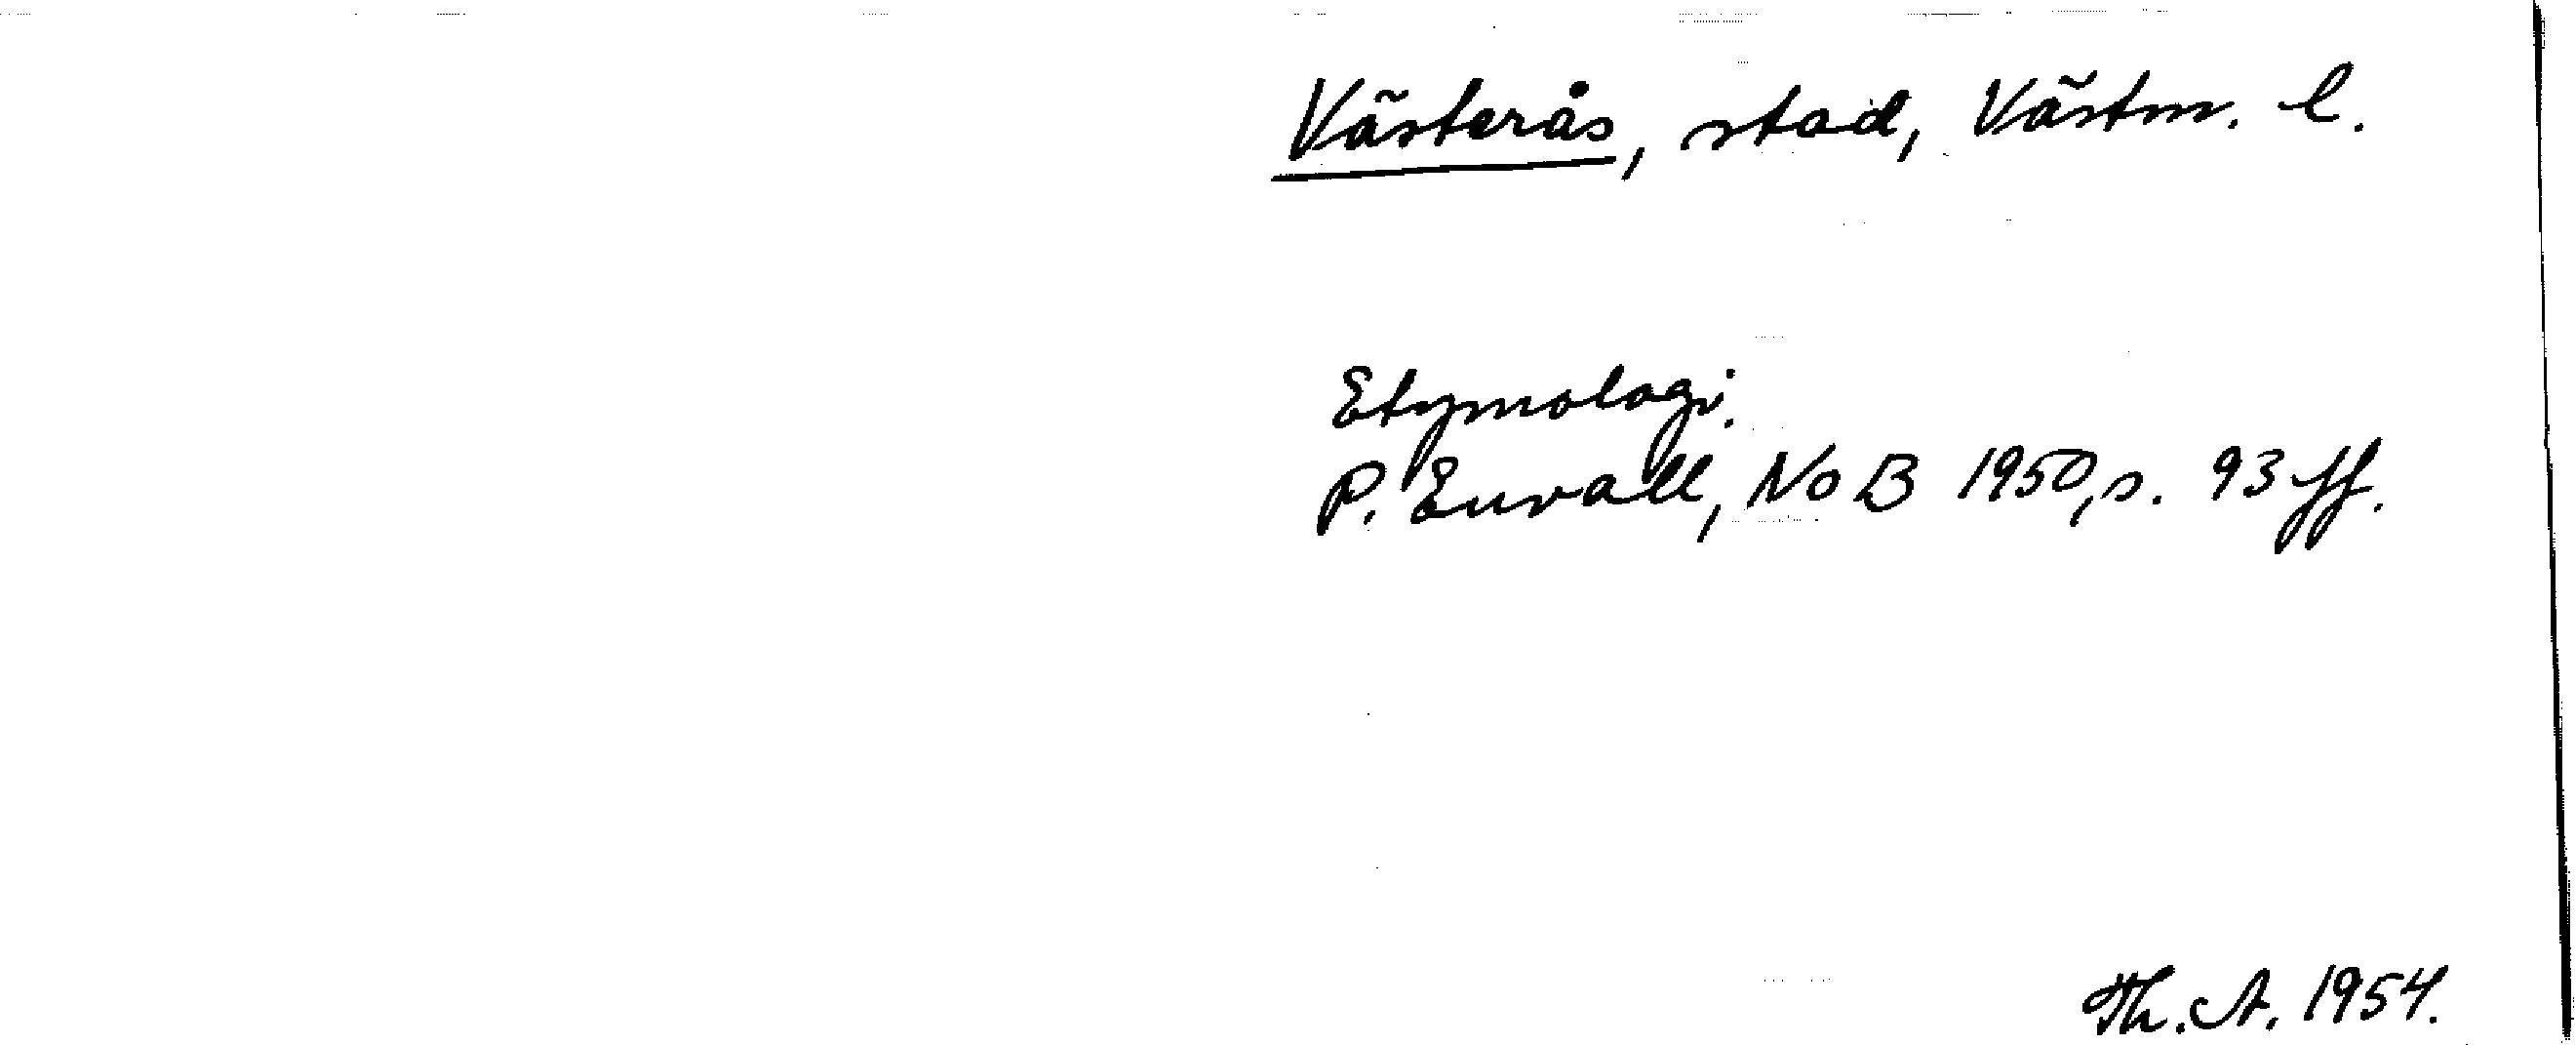 Västerås, stad, Västm. l.
Etymologi.
P. Envall, NoB 1950, s. 93 ff.
Th. A. 1954.